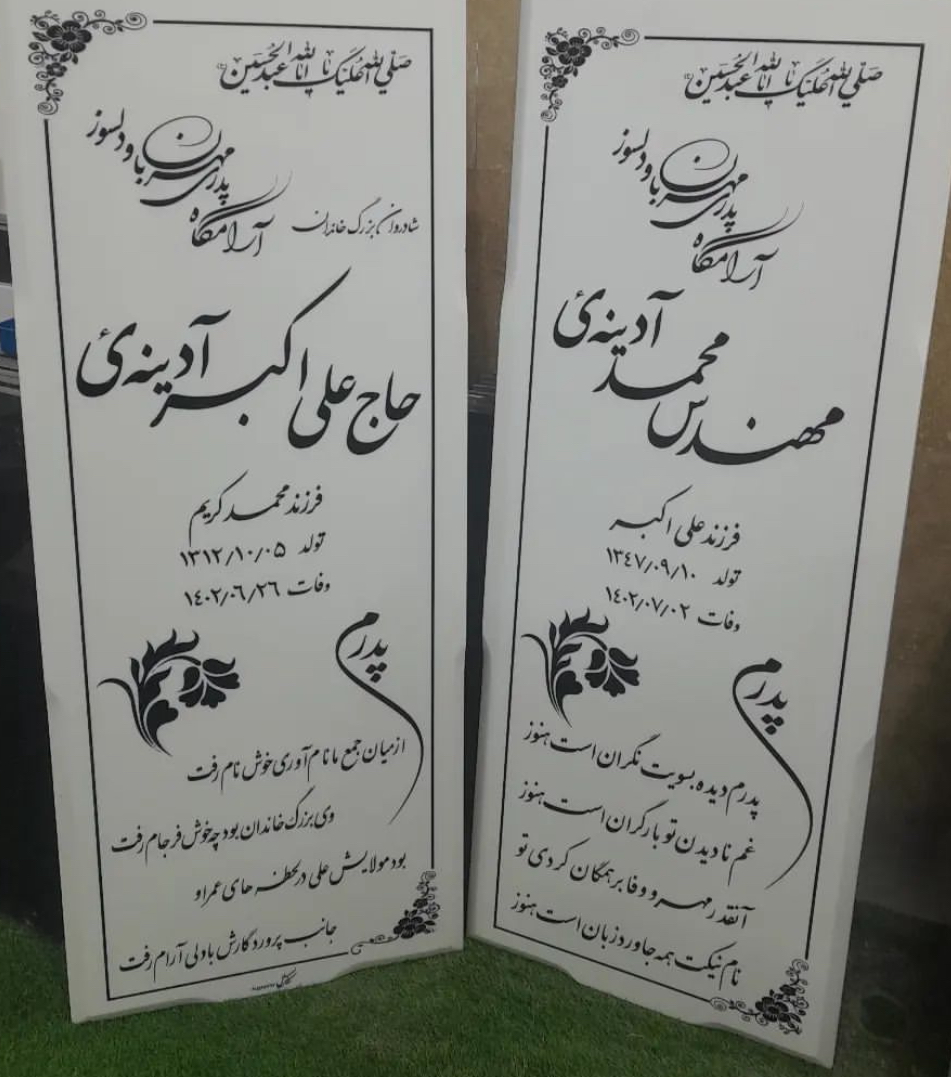 صلی الله علیک یا اباعبدالحسین
آرامگاه
پدری مهربان و دلسوز
آدینه‌ئ
مهندس محمد
فرزند علی اکبر
تولد ۱۳٤۷/۰۹/۱۰
وفات ۱٤۰۲/۰۷/۰۲
پدرم
پدرم دیده بسویت نگران است هنوز
غم نادیدن تو بار گران است هنوز
آنقدر مهر و وفا بر همگان کردی تو
نام نیکت همه جا ورد زبان است هنوز
صلی الله علیک یا اباعبدالحسین
آرامگاه
پدری مهربان و دلسوز
شادروان بزرگ خاندان
حاج علی اکبر آدینه‌ئ
فرزند محمد کریم
تولد ۱۳۱۲/۱۰/۰۵
وفات ۱٤۰۲/۰٦/۲٦
پدرم
از میان جمع ما نام آوری خوش نام رفت
وی بزرگ خاندان بود چه خوش فرجام رفت
بود مولایش علی در لحظه های عمر او
جانب پروردگارش با دلی آرام رفت